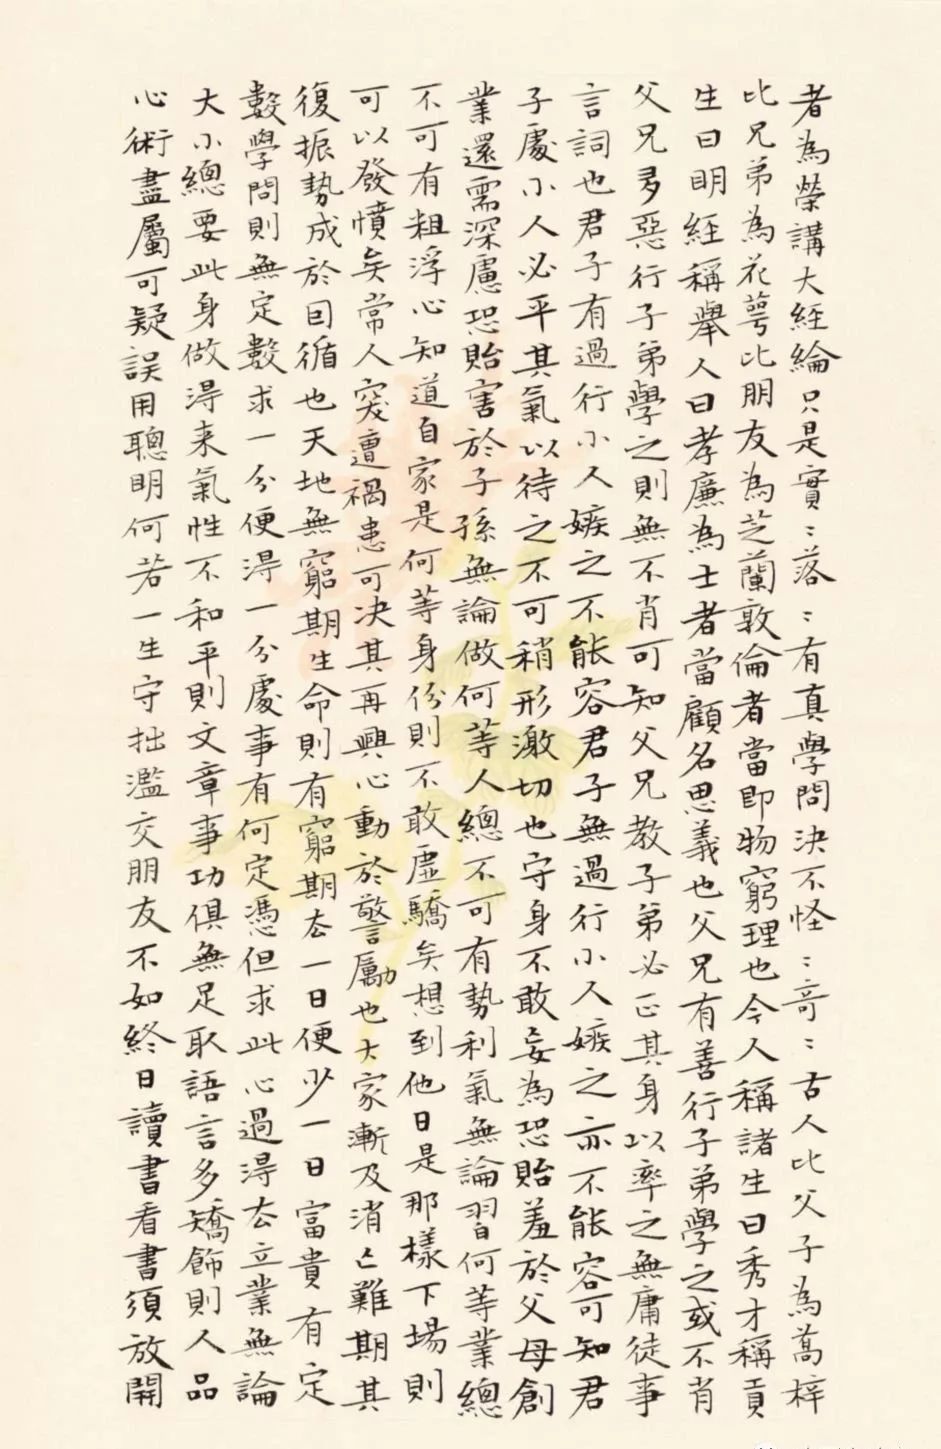 者為榮講大經綸只是實〻落〻有真學問決不怪〻奇〻古人比父子為喬梓
比兄弟為花萼比朋友為芝蘭敦倫者當即物窮理也今人稱諸生曰秀才稱貢
生曰明經稱舉人曰孝廉為士者當顧名思義也父兄有善行子弟學之或不肖
父兄多惡行子弟學之則無不肖可知父兄教子弟必正其身以率之無庸徒事
言詞也君子有過行小人嫉之不能容君子無過行小人嫉之亦不能容可知君
子處小人必平其氣以待之不可稍形激切也守身不敢妄為恐貽羞於父母創
業還需深慮恐貽害於子孫無論做何等人總不可有勢利氣無論習何等業總
不可有粗浮心知道自家是何等身份則不敢虛驕矣想到他日是那樣下場則
可以發憤矣常人突遭禍患可決其再興心動於警勵也大家漸及消亡難期其
復振勢成於因循也天地無窮期生命則有窮期去一日便少一日富貴有定
數學問則無定數求一分便得一分處事有何定憑但求此心過得去立業無論
大小總要此身做得来氣性不和平則文章事功俱無足取語言多矯飾則人品
心術盡屬可疑誤用聰明何若一生守拙濫交朋友不如終日讀書看書須放開